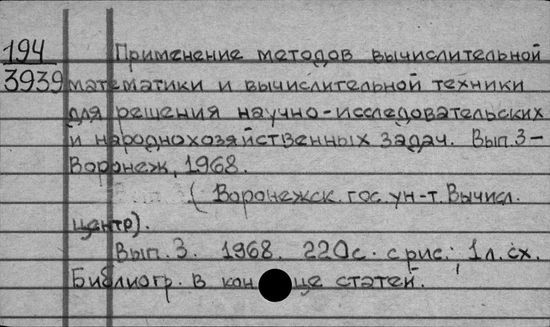 194
3939
Применение методов вычислительной
математики и вычислительной техники
для решения научно-исследовательских
и народнохозяйственных задач. Вып.3-
Воронеж, 1968.
(Воронежск. гос. ун-т. Вычисл.
центр).
Вып. 3. 1968. 220с. с рис.; 1 л. сх.
Библиогр. в конце статей.